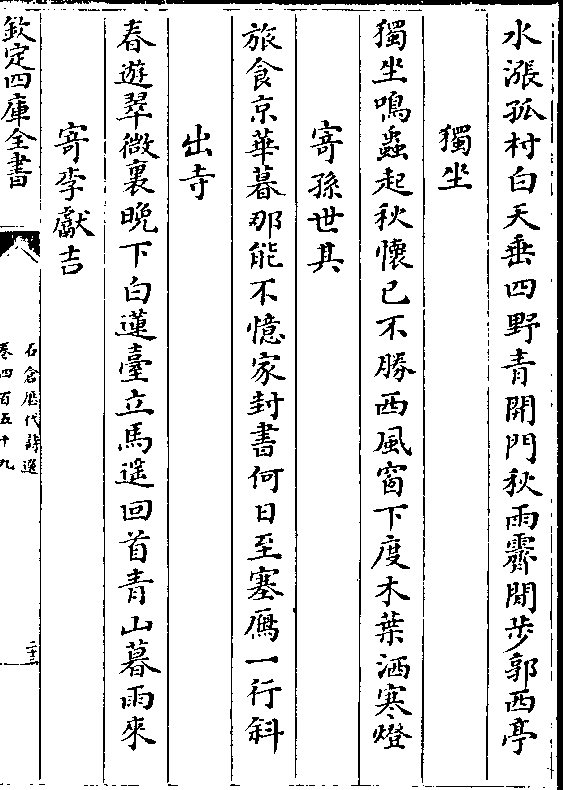 水漲孤村白天垂四野青開門秋雨霽閒步郭西亭
獨坐
獨坐鳴蟲起秋懷已不勝西風窗下度木葉洒寒燈
寄孫世其
旅食京華暮那能不憶家封書何日至塞鴈一行斜
出寺
春遊翠微裏晚下白蓮臺立馬遥回首青山暮雨來
寄李獻吉
欽定四庫全書
石倉歷代詩選
卷四百五十九
二十三